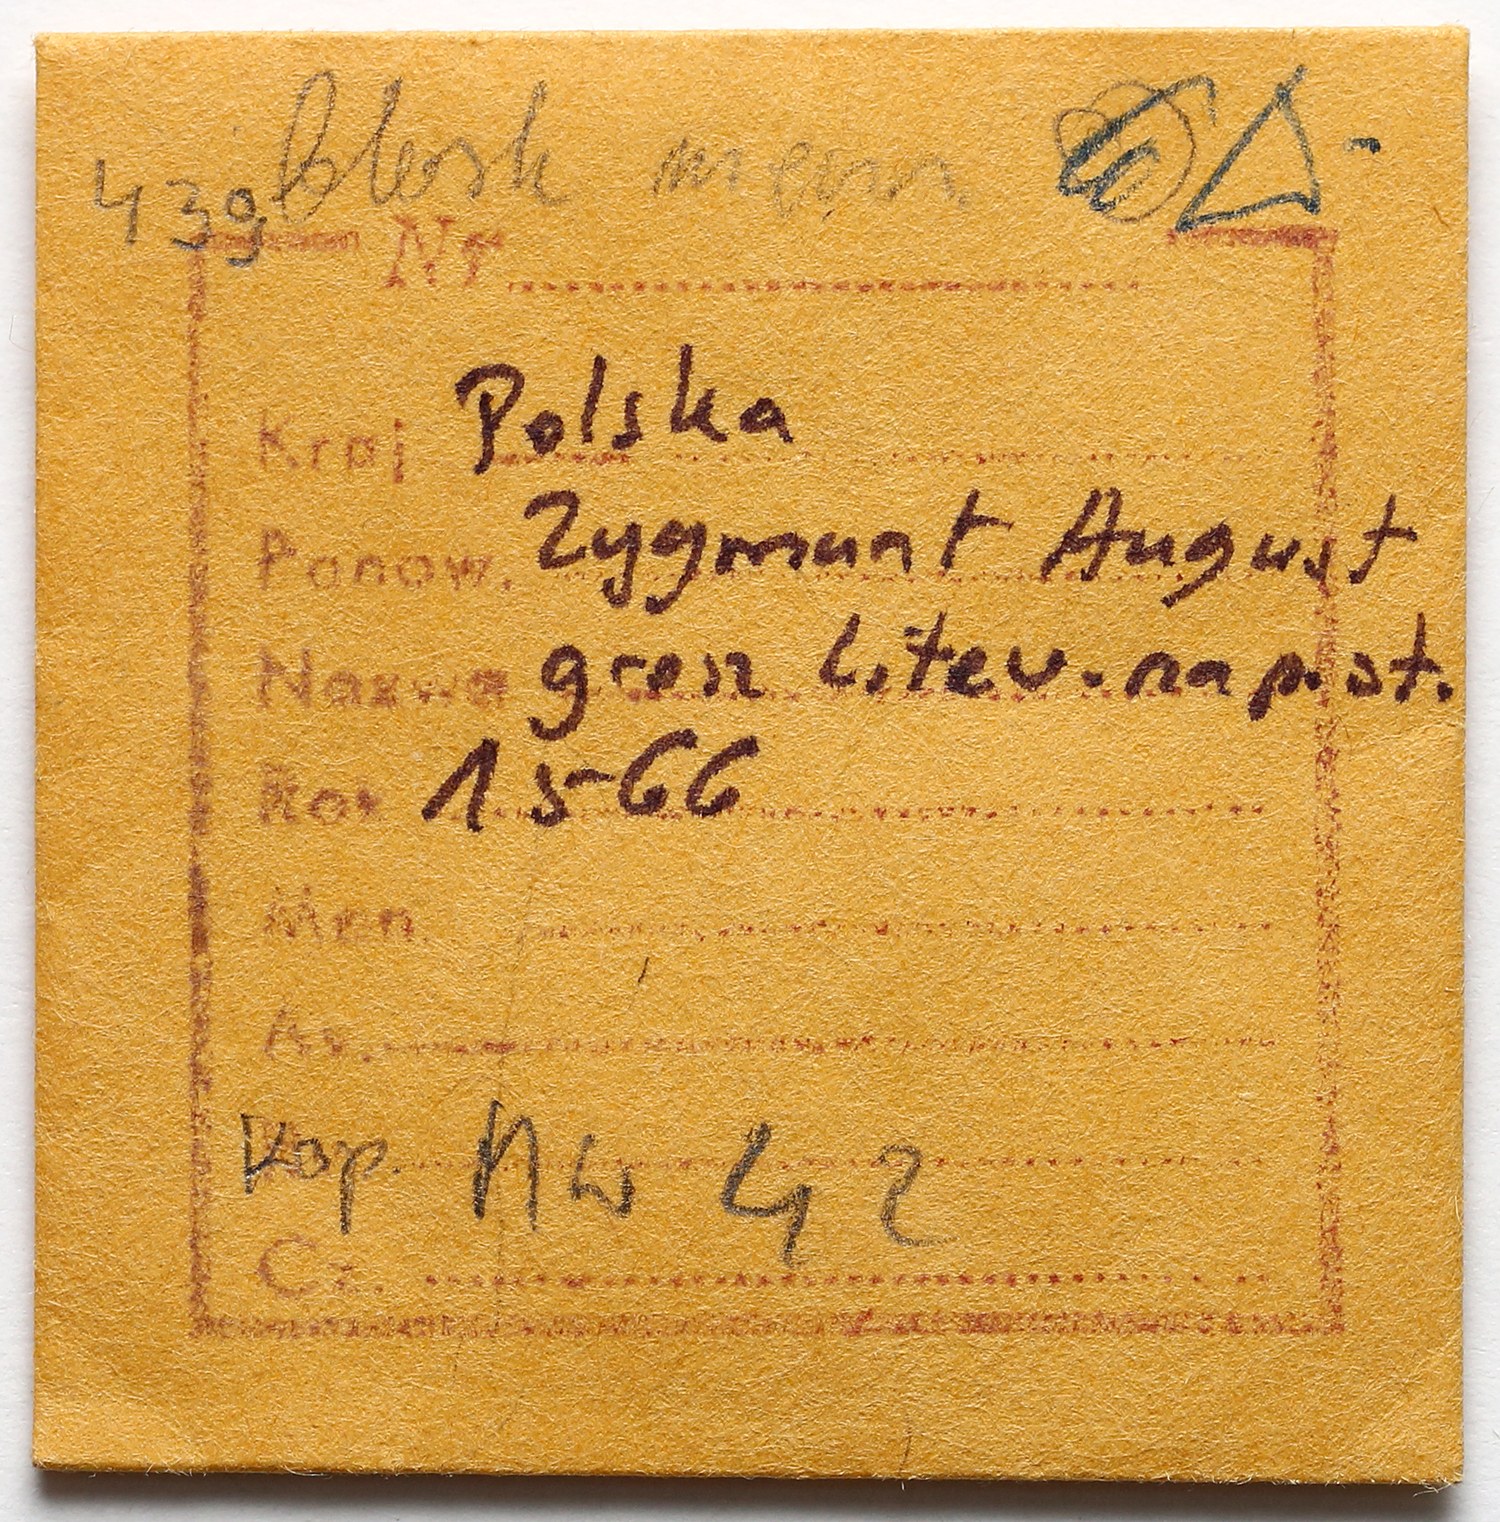 439 Blask menn.
Nr
Kraj Polska
Panow. Zygmunt August
Nazwa grosz Litew. na p. st.
Rok 1566
Men.
Av.
Kop. NW 42
Cz.